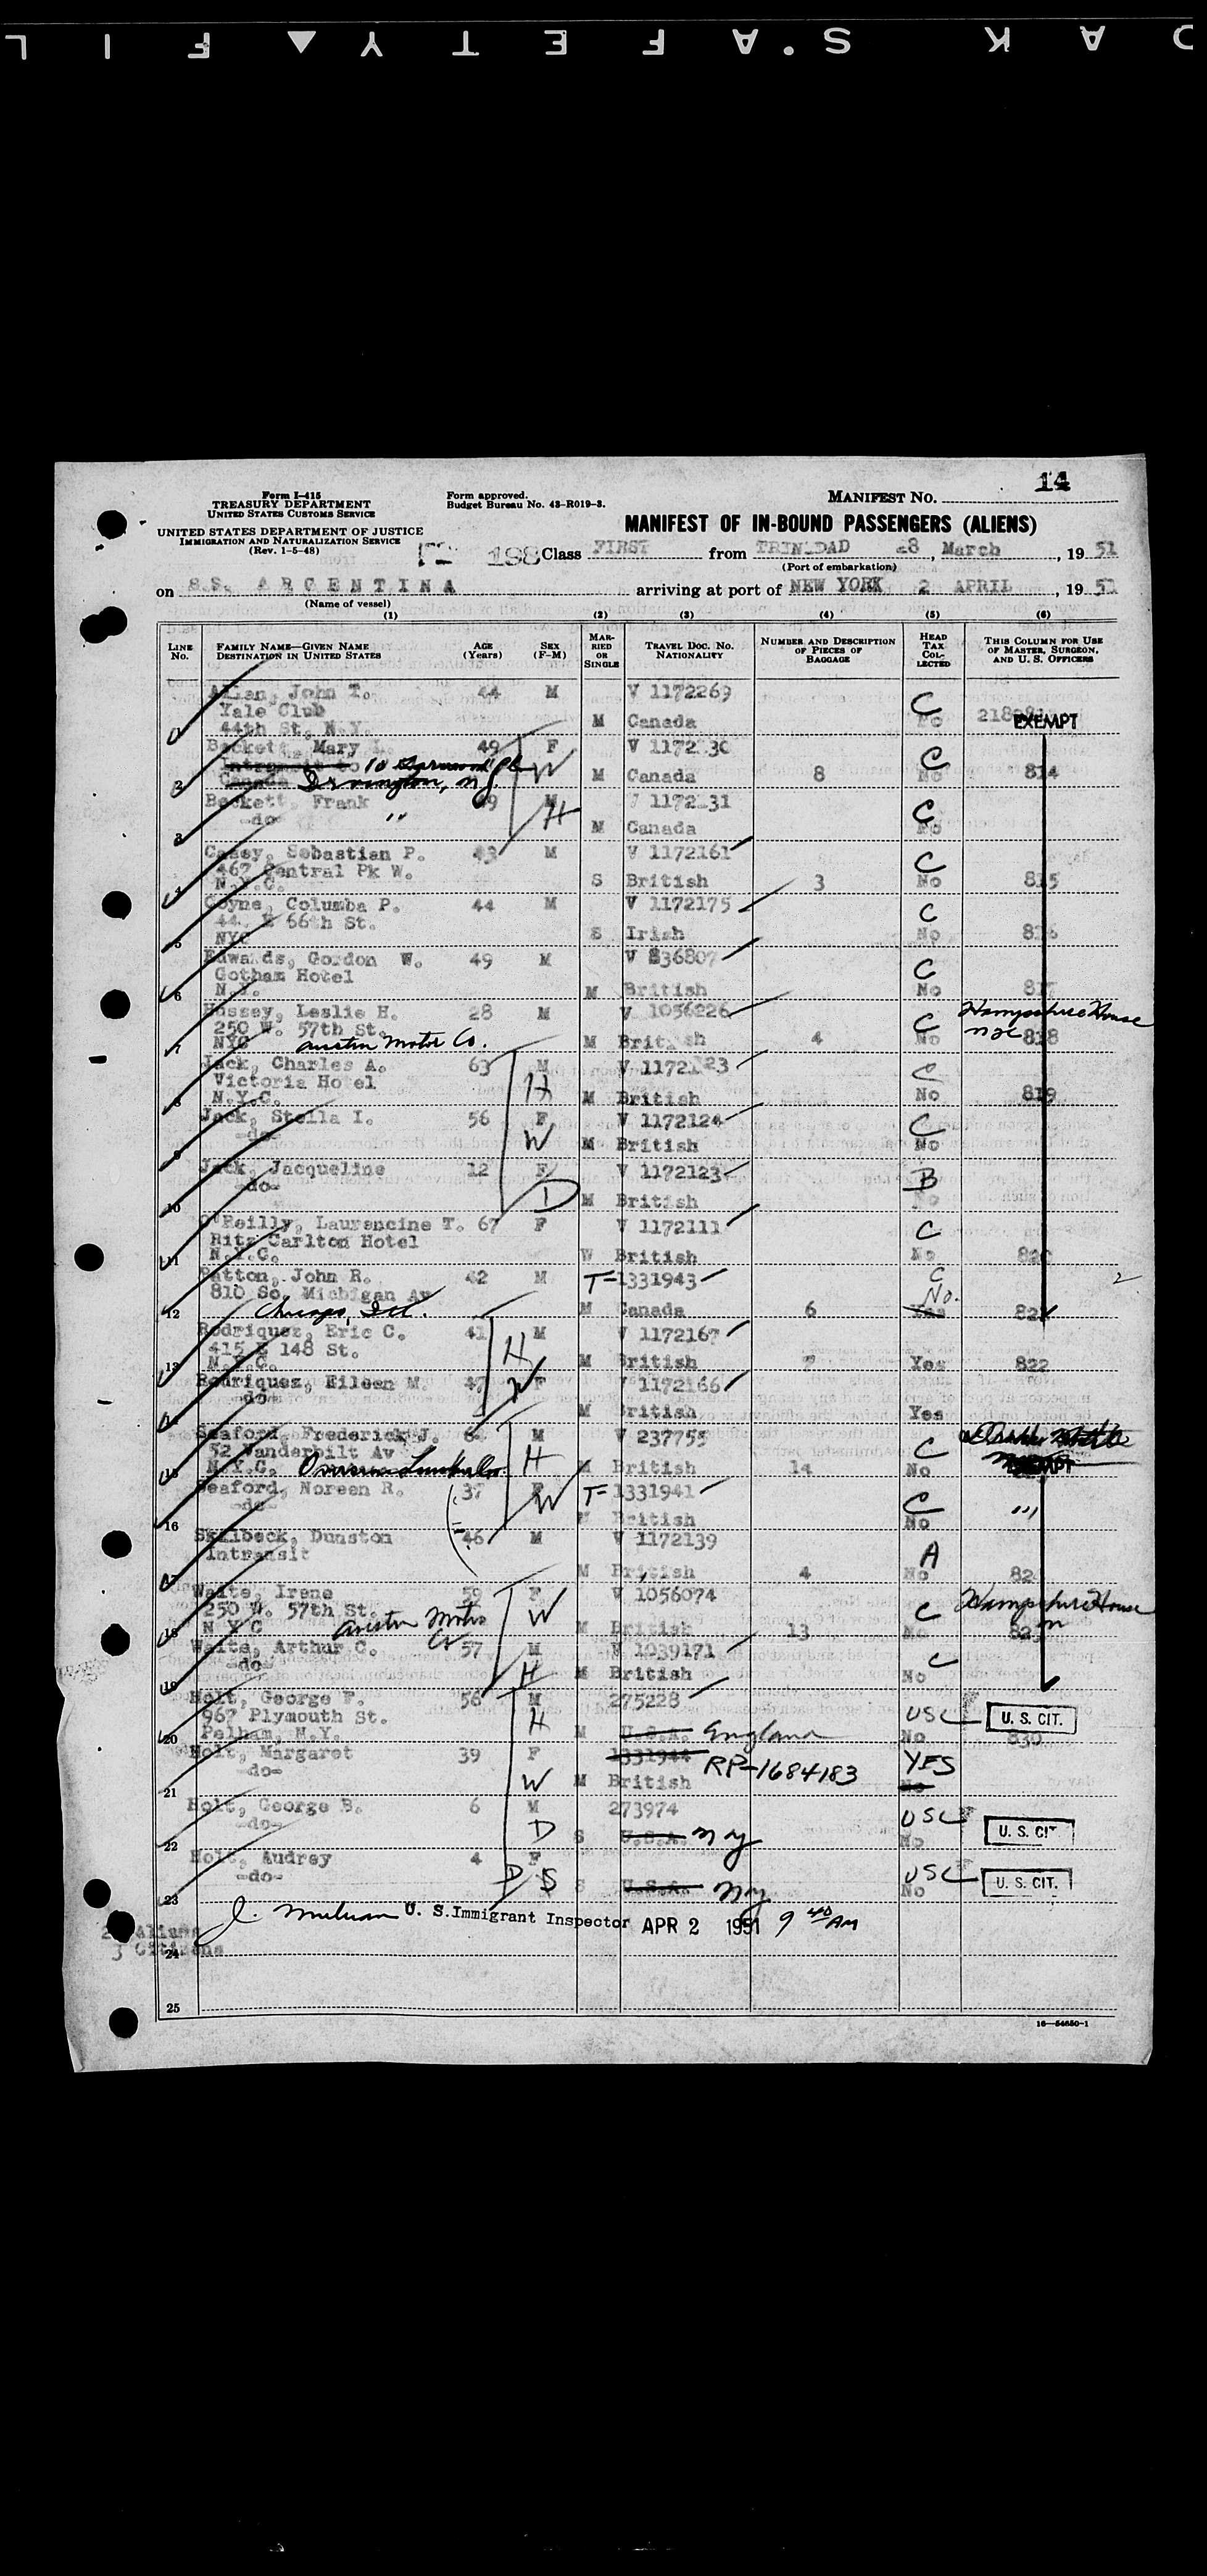 KODAK · SAFETY FILM
Form I-415
TREASURY DEPARTMENT
UNITED STATES CUSTOMS SERVICE
UNITED STATES DEPARTMENT OF JUSTICE
IMMIGRATION AND NATURALIZATION SERVICE
(Rev. 1-5-48)
Form approved.
Budget Bureau No. 43-R019-3.
MANIFEST NO. 14
MANIFEST OF IN-BOUND PASSENGERS (ALIENS)
198 Class FIRST from TRINIDAD 28, March, 1951
(Port of embarkation)
on S.S. ARGENTINA arriving at port of NEW YORK 2 APRIL, 1951
(Name of vessel)
(1) (2) (3) (4) (5) (6)
LINE NO.
FAMILY NAME—GIVEN NAME DESTINATION IN UNITED STATES
AGE (Years)
SEX (F-M)
MARRIED OR SINGLE
TRAVEL DOC. NO. NATIONALITY
NUMBER AND DESCRIPTION OF PIECES OF BAGGAGE
HEAD TAX COLLECTED
THIS COLUMN FOR USE OF MASTER, SURGEON, AND U. S. OFFICERS
Allan, John T. 44 M V 1172269 C
Yale Club
44th St, N.Y. M Canada No EXEMPT
Beckett, Mary 49 F V 1172 30 C
Intransit to 10 Pl W
2 Canada Irvington, N.J. M Canada 8 No 814
Beckett, Frank M 31 C
-do- " H
3 M Canada No
Casey, Sebastian P. 43 M V 1172161 C
467 Central Pk W.
4 N.Y.C. S British 3 No 815
Coyne, Columba P. 44 M V 1172175 C
44 E 66th St.
5 NYC S Irish No 816
Edwards, Gordon W. 49 M V 836807 C
Gotham Hotel
6 N.Y. M British No 817
Hussey, Leslie H. 28 M V 1056226 C Hampshire House
250 W. 57th St. NYC
7 NYC Austin Motor Co. M British 4 No 818
Jack, Charles A. 63 M V 1172123 C
Victoria Hotel H
8 N.Y.C. M British No 819
Jack, Stella I. 56 F V 1172124 C
-do- W
9 M British No
Jack, Jacqueline 12 F V 1172123 B
-do- D
10 M British No
O'Reilly, Laurencine T. 67 F V 1172111 C
Ritz Carlton Hotel
11 N.Y.C. W British No 820
Patton, John R. 42 M T-1331943 C 2
810 So. Michigan Av No.
12 Chicago, Ill. M Canada 6 Yes 821
Rodriquez, Eric C. 41 M V 1172167
415 E 148 St. H
13 N.Y.C. M British 7 Yes 822
Rodriquez, Eileen M. 47 F V 1172166
-do- W
M British Yes
Seaford, Frederick J. M V 237755 C
52 Vanderbilt Av H
15 N.Y.C. M British 14 No EXEMPT
Seaford, Noreen R. 37 F T-1331941 C
-do- W
16 M British No
Skilbeck, Dunston 46 M V 1172139 A
Intransit
17 M British 4 No 82
Waite, Irene 59 F V 1056074 C Hampshire House
250 W. 57th St. W
18 N Y C Austin Motor Co M British 13 No
Waite, Arthur C. 57 M V 1039171 C
-do- H
19 M British No
Holt, George F. 56 M 275228 USC U. S. CIT.
967 Plymouth St. H
20 Pelham, N.Y. M U.S.A. England No 830
Holt, Margaret 39 F 1331944 RP-1684183 YES
-do- W
21 M British No
Holt, George B. 6 M 273974 USC U. S. CIT
-do- D
22 S U.S.A. NY No
Holt, Audrey 4 F USC U. S. CIT.
-do- D S
23 S U.S.A. NY No
U. S. Immigrant Inspector APR 2 1951 9 40 AM
Aliens
24
3 Citizens
25
16—54650-1